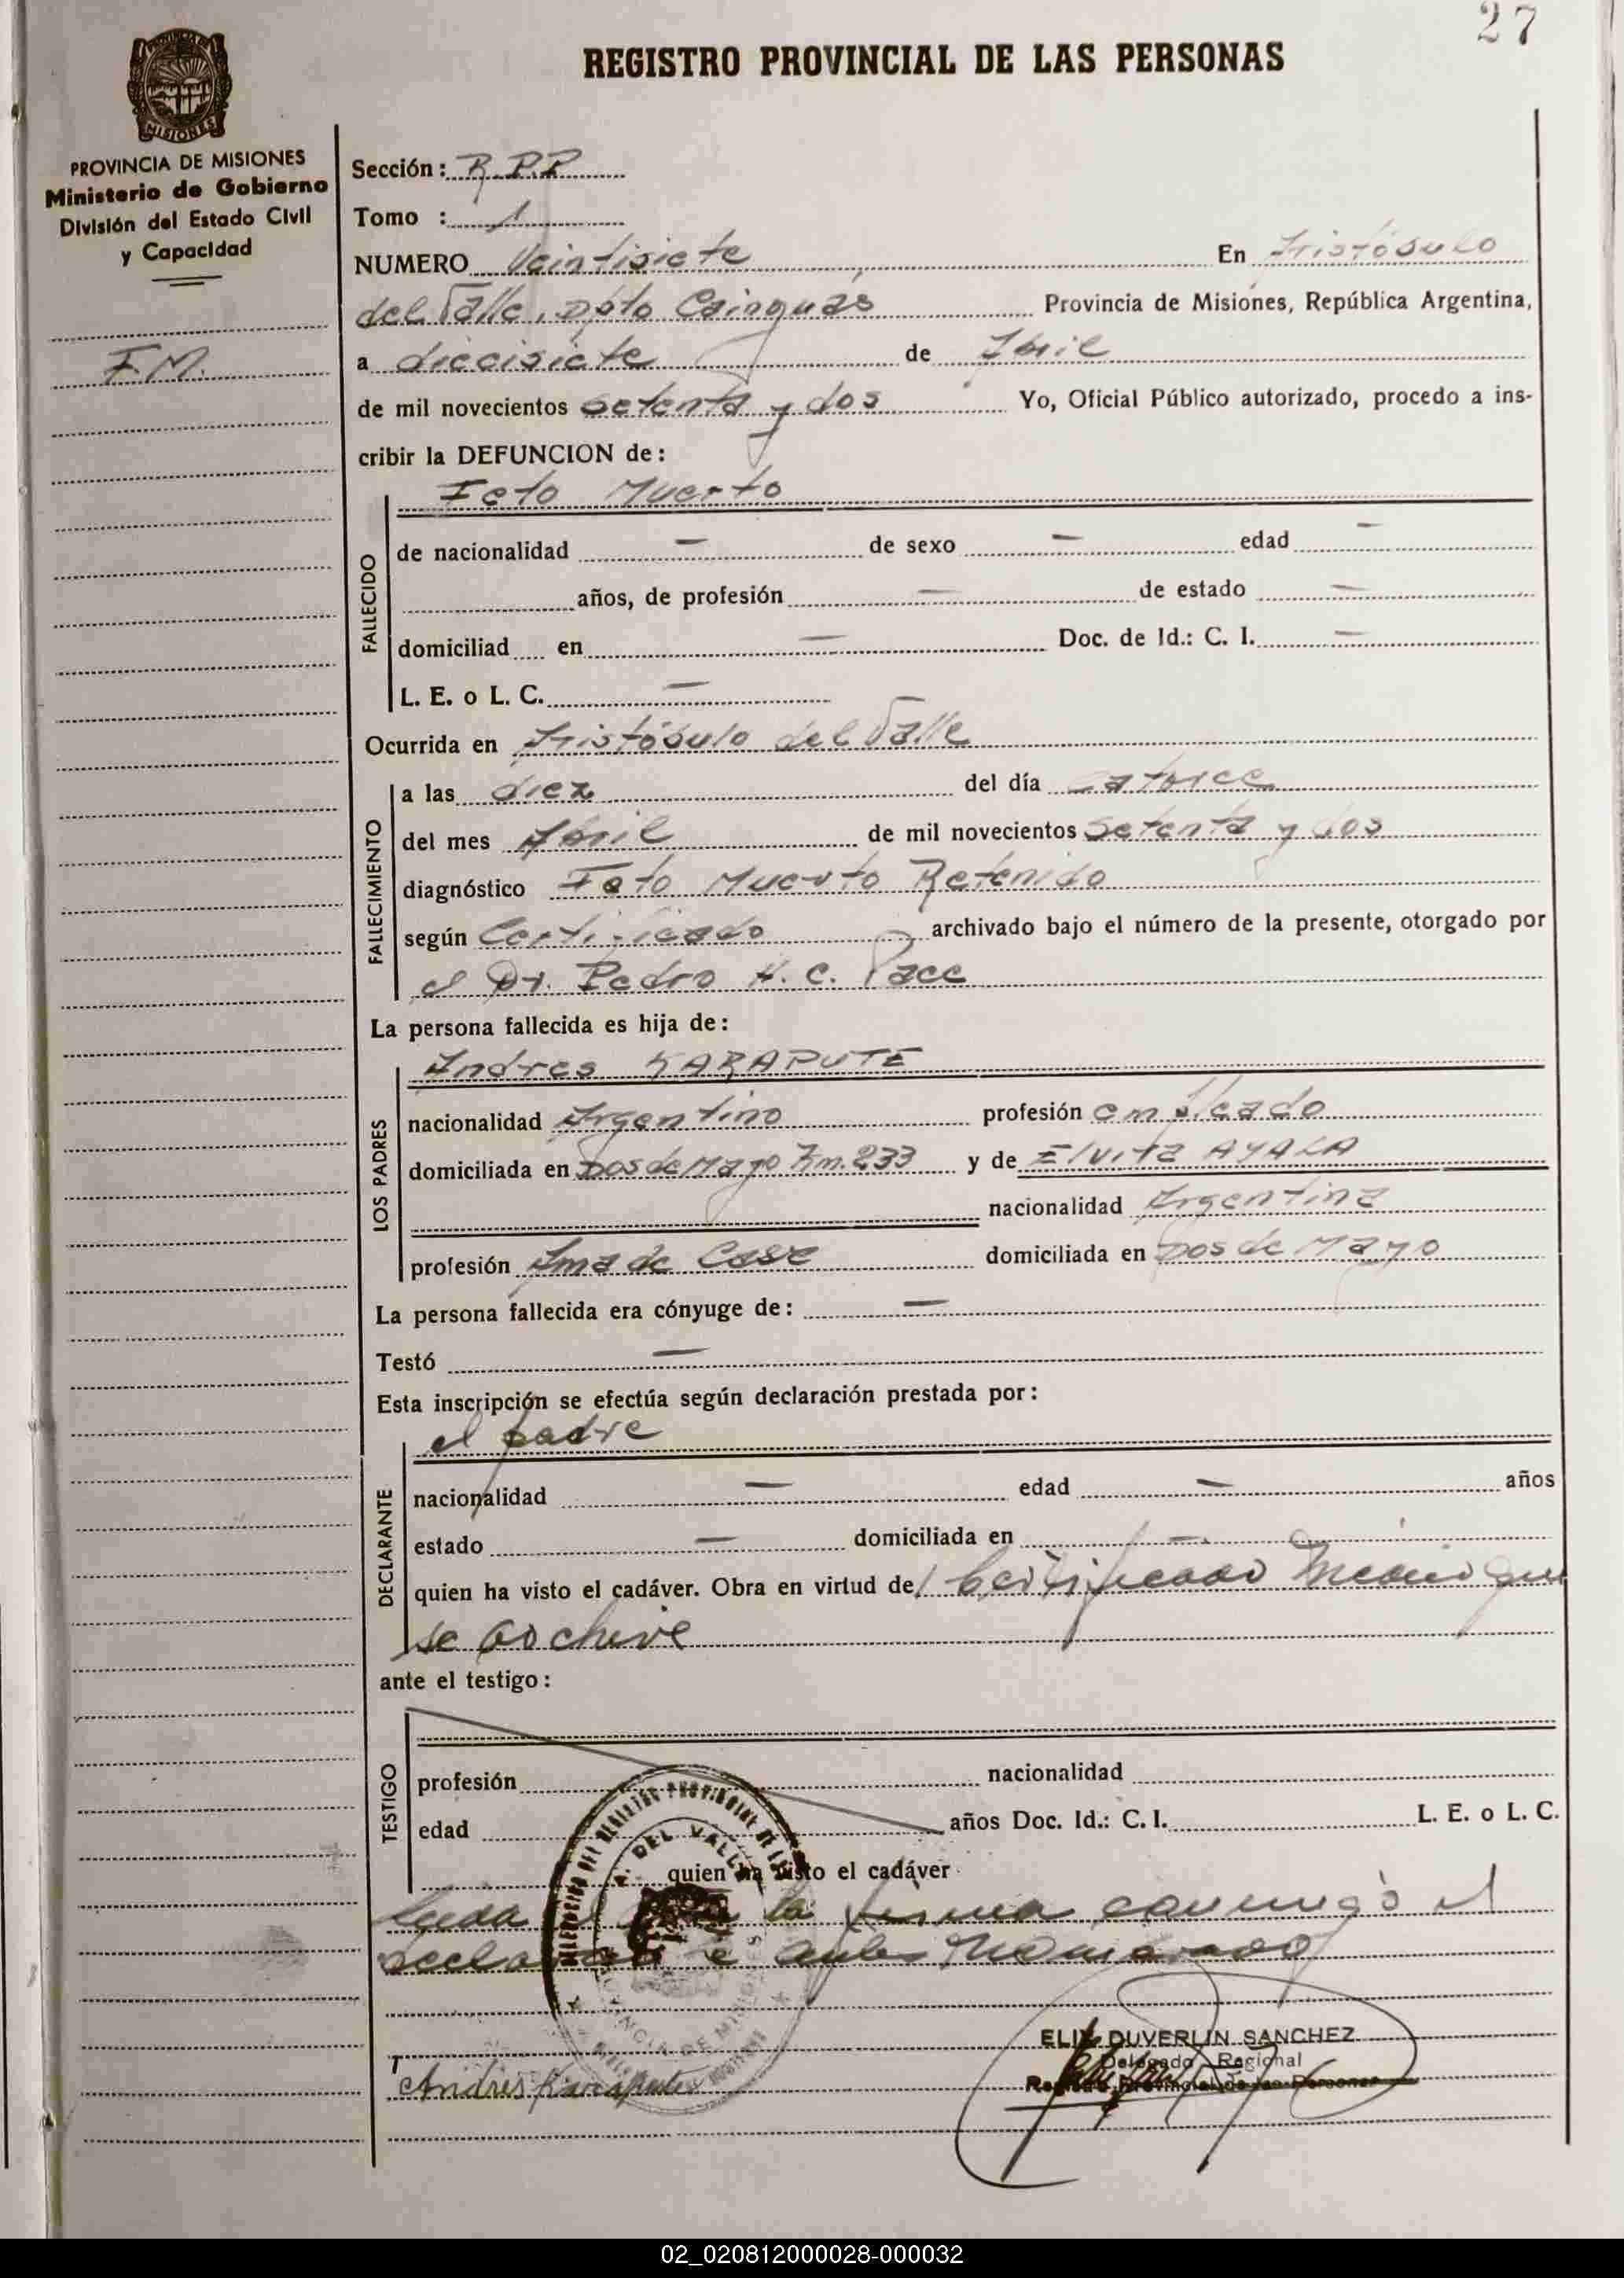 27
REGISTRO PROVINCIAL DE LAS PERSONAS
PROVINCIA DE MISIONES
MISIONES
PROVINCIA DE MISIONES
Ministerio de Gobierno
División del Estado Civil
y Capacidad
F.M.
Sección: R.P.P
Tomo : 1
NUMERO Veintisiete En Aristóbulo
del Valle, Dpto Cainguás Provincia de Misiones, República Argentina,
a diecisiete de Abril
de mil novecientos setenta y dos Yo, Oficial Público autorizado, procedo a ins-
cribir la DEFUNCION de:
Feto Muerto
FALLECIDO
de nacionalidad — de sexo — edad —
años, de profesión — de estado —
domiciliad en — Doc. de Id.: C. I. —
L. E. o L. C. —
Ocurrida en Aristóbulo del Valle
FALLECIMIENTO
a las diez del día catorce
del mes Abril de mil novecientos setenta y dos
diagnóstico Feto Muerto Retenido
según Certificado archivado bajo el número de la presente, otorgado por
el Dr. Pedro H. C. Pace
La persona fallecida es hija de:
LOS PADRES
Andres KARAPUTE
nacionalidad Argentino profesión empleado
domiciliada en Dos de Mayo Km. 233 y de Elvita AYALA
nacionalidad Argentina
profesión Ama de Casa domiciliada en Dos de Mayo
La persona fallecida era cónyuge de: —
Testó —
Esta inscripción se efectúa según declaración prestada por:
DECLARANTE
el padre
nacionalidad — edad — años
estado — domiciliada en —
quien ha visto el cadáver. Obra en virtud de l Certificado Medico que
se archive
ante el testigo:
TESTIGO
profesión nacionalidad
edad años Doc. Id.: C. I. L. E. o L. C.
quien ha visto el cadáver
Leida el la firma conmigo el
declarante antes nombrado
DEL VALLE
PROVINCIA DE MISIONES
Andres Karapute
ELIX DUVERLIN SANCHEZ
Delegado Regional
Registro Provincial de las Personas
02_020812000028-000032